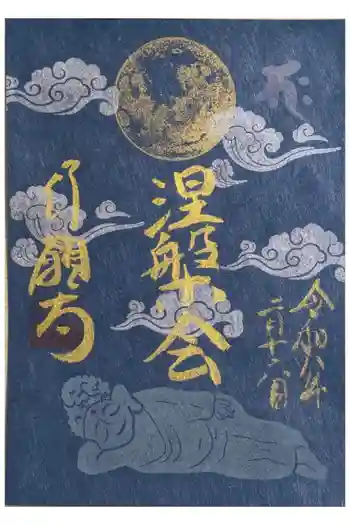 令和六年
二月十六日
涅槃会
行願寺